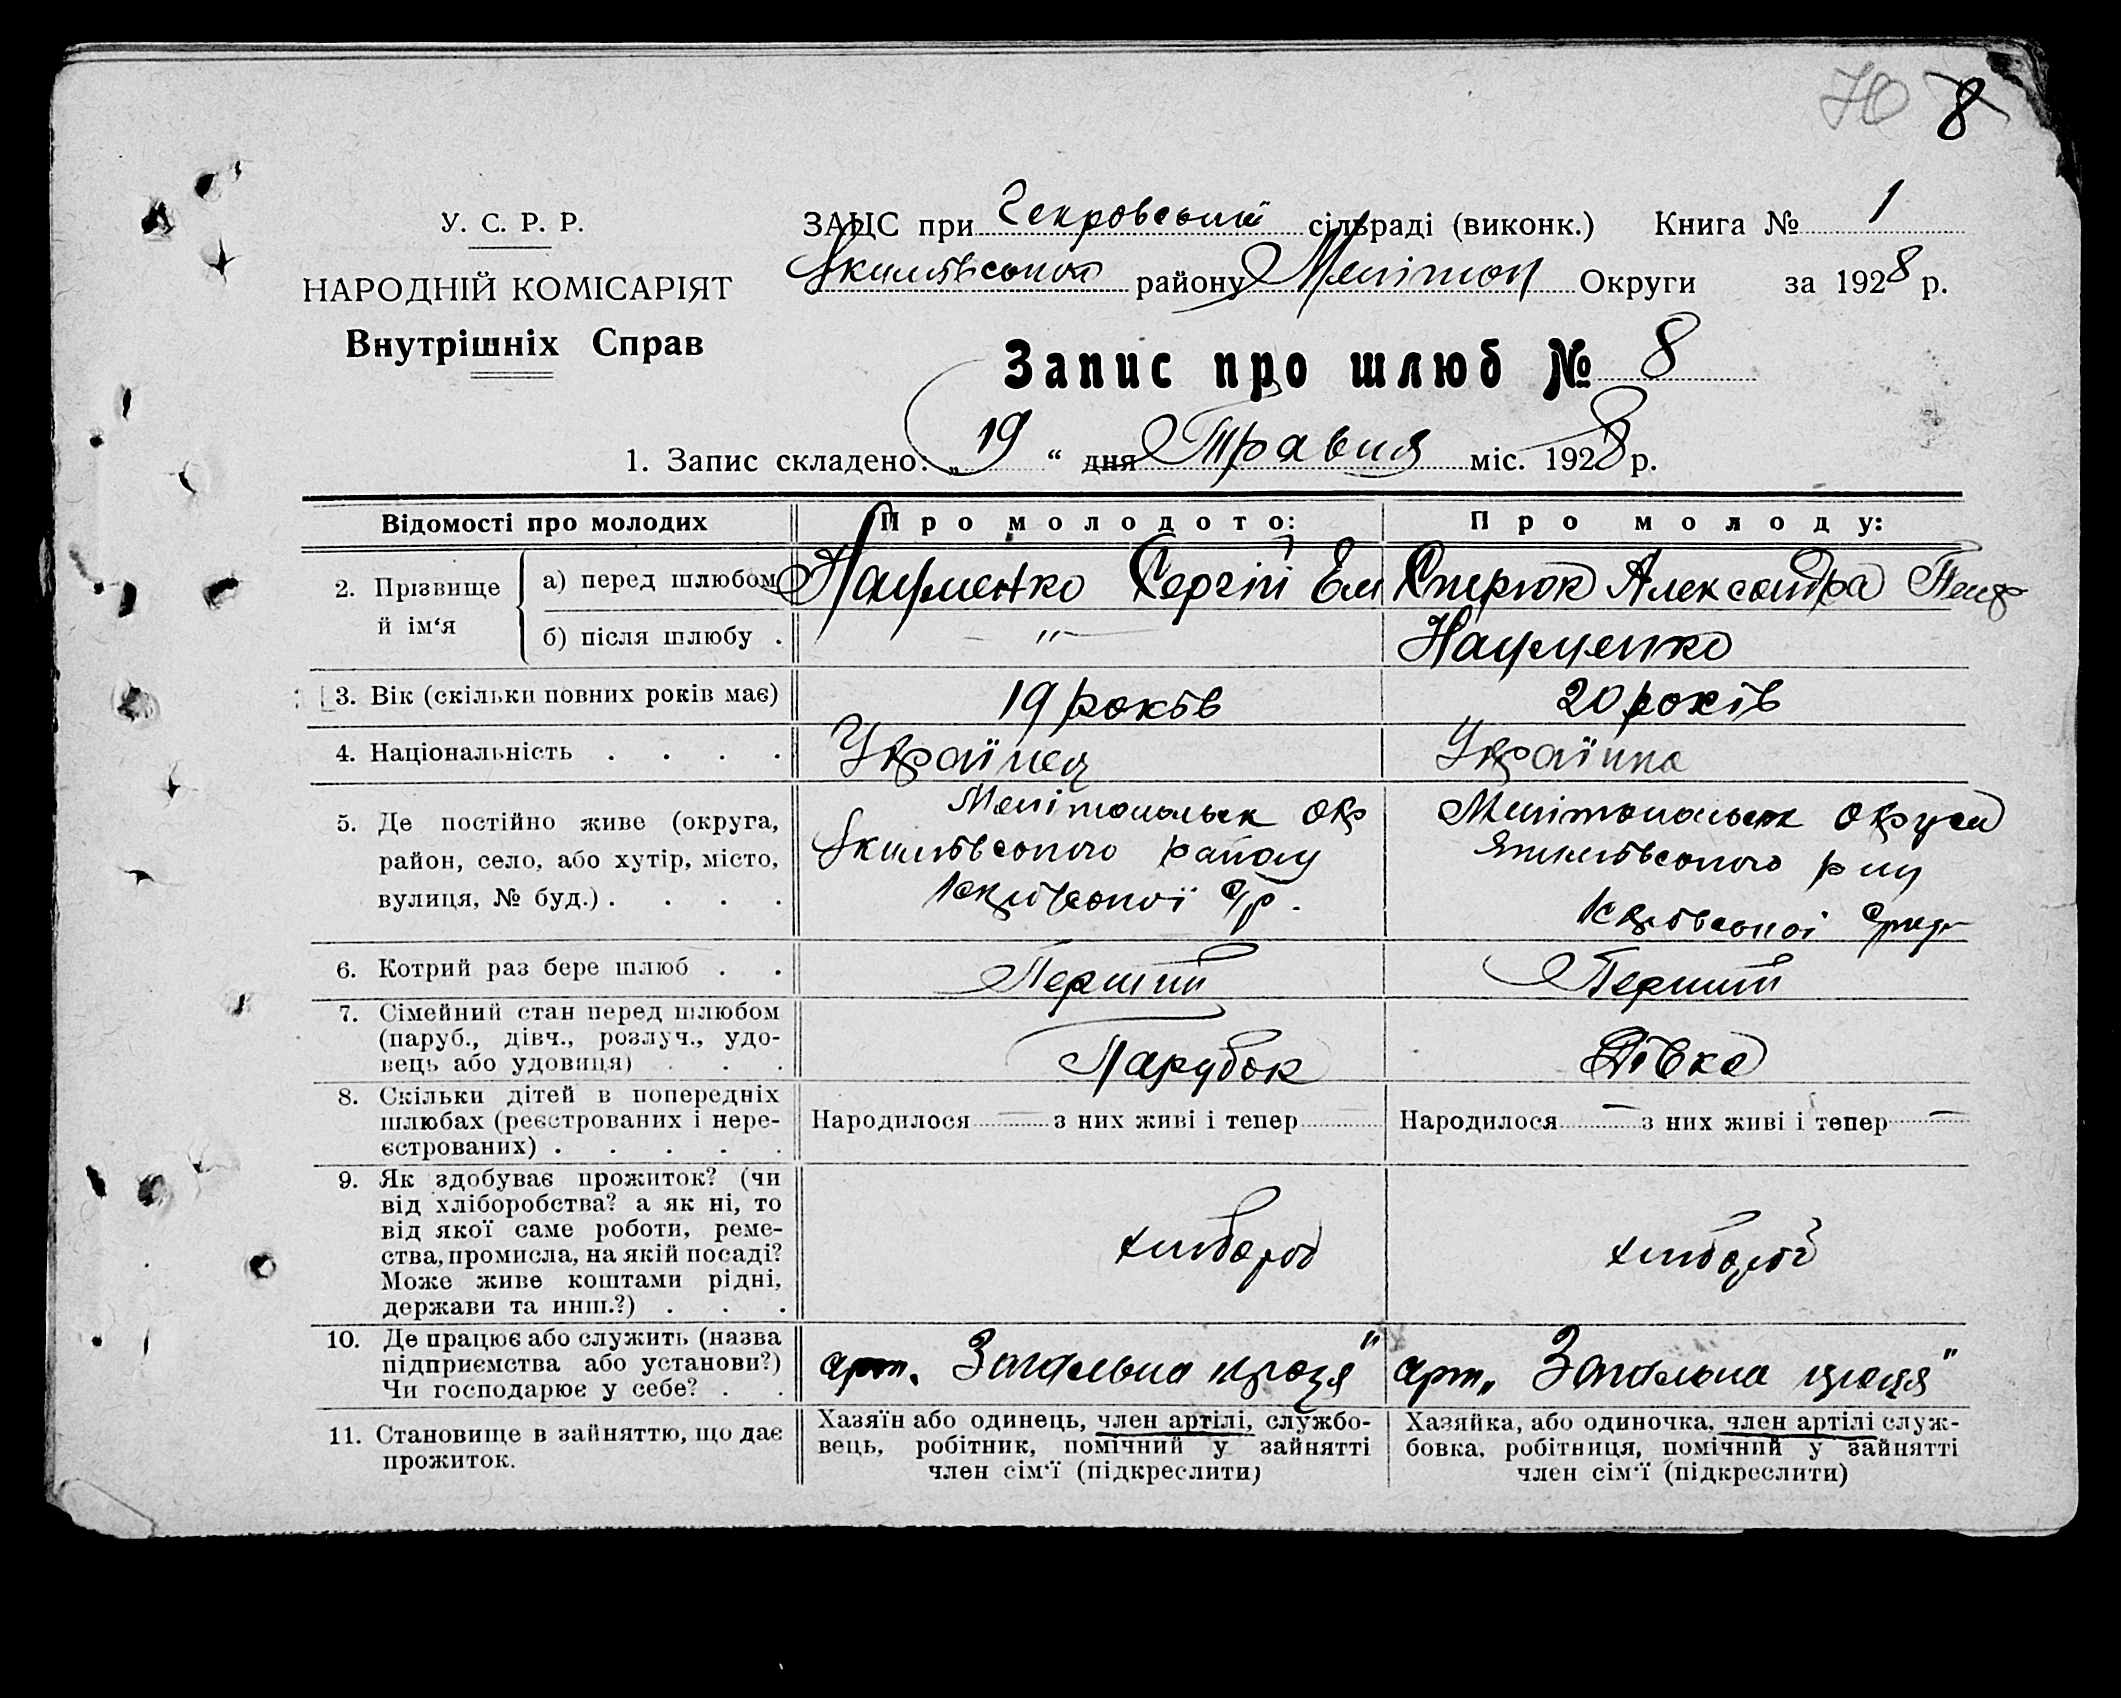 70 8
У. С. Р. Р.
НАРОДНІЙ КОМІСАРІЯТ
Внутрішніх Справ
ЗАЦС при сільраді (виконк.) Книга № 1
району Мелітоп Округи за 1928 р.
Запис про шлюб № 8
1. Запис складено: „ 19 “ дня Травня міс. 1928 р.
Відомості про молодих Про молодого: Про молоду:
2. Прізвище й ім‘я а) перед шлюбом Науменко Сергій Ем Спірюк Александра
б) після шлюбу . — " — Науменко
3. Вік (скільки повних років має) 19 років 20 років
4. Національність . . . . Українец Українка
5. Де постійно живе (округа, Мелітопольск окр Мелітопольск округи
район, село, або хутір, місто, Якимівського району Якимівського
вулиця, № буд.) . . . . с/р.
6. Котрий раз бере шлюб . . Перший Перший
7. Сімейний стан перед шлюбом
(паруб., дівч., розлуч., удо-
вець або удовиця) . . . Парубок Дівка
8. Скільки дітей в попередніх
шлюбах (реєстрованих і нере- Народилося — з них живі і тепер Народилося — з них живі і тепер —
єстрованих) . . . . .
9. Як здобуває прожиток? (чи
від хліборобства? а як ні, то
від якої саме роботи, реме-
ства, промисла, на якій посаді? хлібороб хлібороб
Може живе коштами рідні,
держави та инш.?) . . .
10. Де працює або служить (назва
підприємства або установи?) арт. Загальна праця" арт„ Загальна праця"
Чи господарює у себе? . .
11. Становище в зайняттю, що дає
прожиток.
Хазяїн або одинець, член артілі, службо-
вець, робітник, помічний у зайнятті
член сім‘ї (підкреслити)
Хазяйка, або одиночка, член артілі служ-
бовка, робітниця, помічний у зайнятті
член сім‘ї (підкреслити)